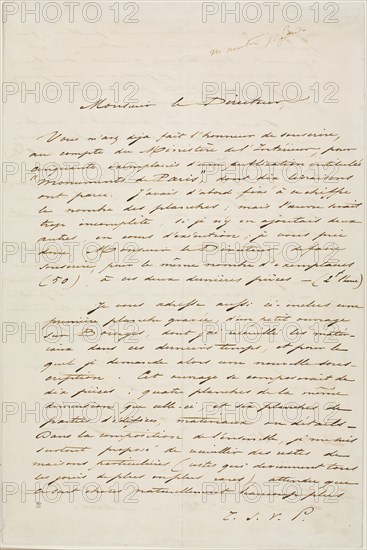 Monsieur le Directeur,
Vous m'avez déjà fait l'honneur de souscrire,
au compte du Ministère de l'Intérieur, pour
cinquante exemplaires d'une publication intitulée
"Monuments de Paris," dont dix livraisons
ont paru. J'avais d'abord fixé à ce chiffre
le nombre des planches; mais l'œuvre serait
trop incomplète, si je n'y en ajoutais deux
autres en cours d'exécution; je vous prie
donc Monsieur le Directeur de faire
souscrire, pour le même nombre d'exemplaires
(50), à ces deux dernières pièces — (2
Je vous adresse aussi ci-inclus une
première planche gravée d'un petit ouvrage
sur Bourges, dont j'ai recueilli les maté-
riaux dans ces derniers temps, et pour le
quel je demande alors une nouvelle sous-
cription. Cet ouvrage se composerait de
dix pièces: quatre planches de la même
dimension que celle-ci et six planches de
parties d'édifices, matériaux ou détails.
Dans la composition de l'ensemble, je me suis
surtout proposé de recueillir des restes de
maisons particulières (restes qui deviennent tous
les jours de plus en plus rares) attendu que
naturellement beaucoup plus
T. S. V. P.
PHOTO12